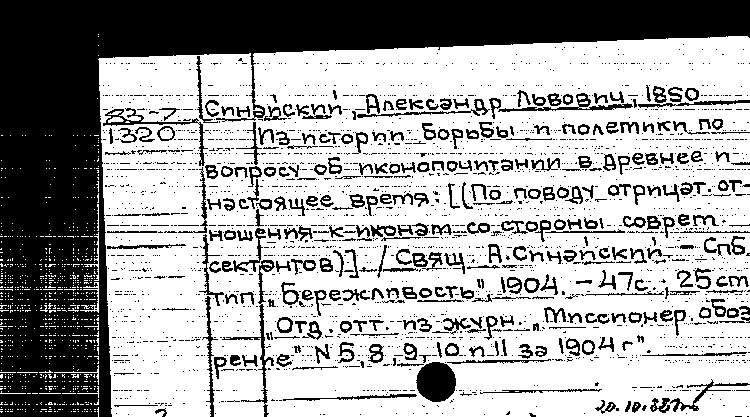 83-7 Синайский, Александр Львович, 1850
1320 Из истории борьбы и полетики по
вопросу об иконопочитании в древнее и
настоящее время: [(По поводу отрицат. от-
ношения к иконам со стороны соврем.
сектантов)]. / Свящ. А.Синайский. - Спб.
тип. „Бережливость", 1904. - 47с.; 25 cm
„Отд. отт. из журн. „Миссионер. обоз
рение" N 5, 8, 9, 10 и 11 за 1904 г".